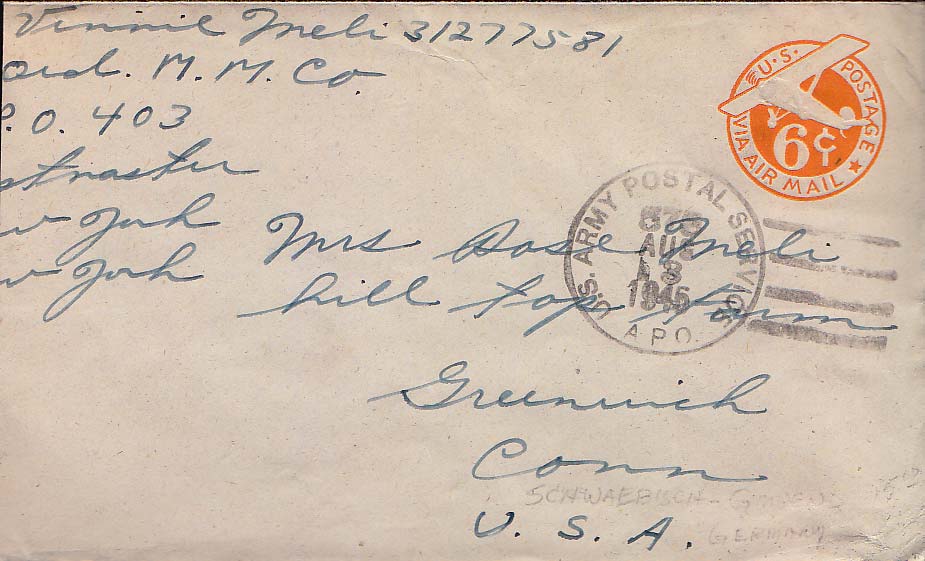 Vinnie Meli 31277581
Ord. M. M. Co
P.O. 403
stmaster
w York
w York
U.S. POSTAGE
VIA AIR MAIL
6¢
U.S. ARMY POSTAL SERVICE
AUG
1945
A.P.O.
Mrs Rose Meli
hill top Farm
Greenwich
Conn
U. S. A.
SCHWAEBISCH - GMUEND
GERMANY